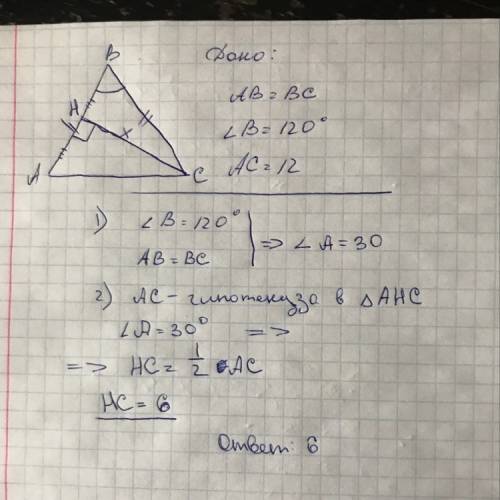 B
H
A
C
x
Дано:
AB = BC
∠B = 120°
AC = 12
1) ∠B = 120°
AB = BC
=> ∠A = 30
2) AC - гипотенуза в △AHC
∠A = 30° =>
=> HC = 1/2 • AC
HC = 6
Ответ: 6